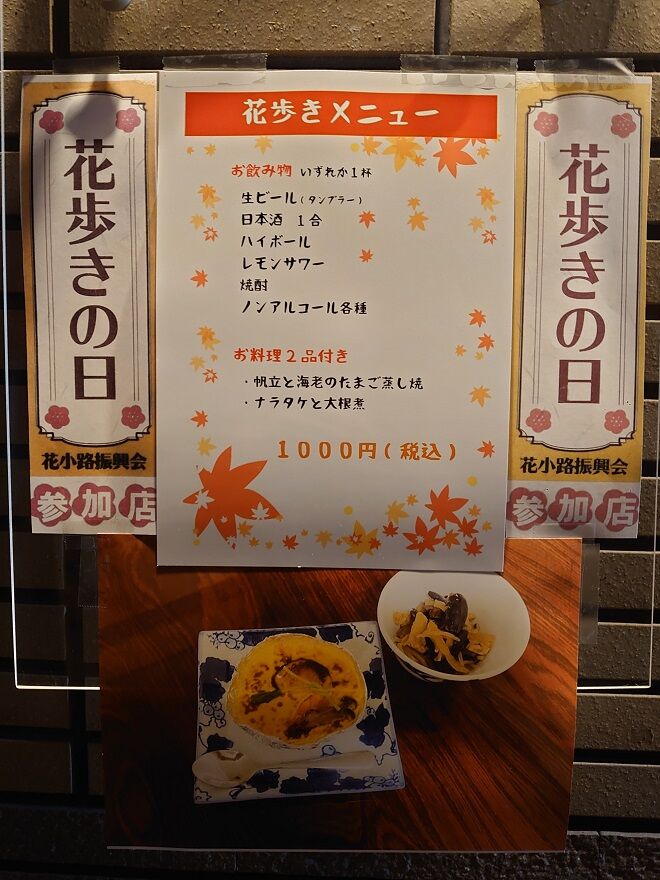 花歩きメニュー
お飲み物 いずれか1杯
生ビール(タンブラー)
日本酒 1合
ハイボール
レモンサワー
焼酎
ノンアルコール各種
お料理2品付き
・帆立と海老のたまご蒸し焼
・ナラタケと大根煮
1000円(税込)
花歩きの日
花小路振興会
参加店
花歩きの日
花小路振興会
参加店